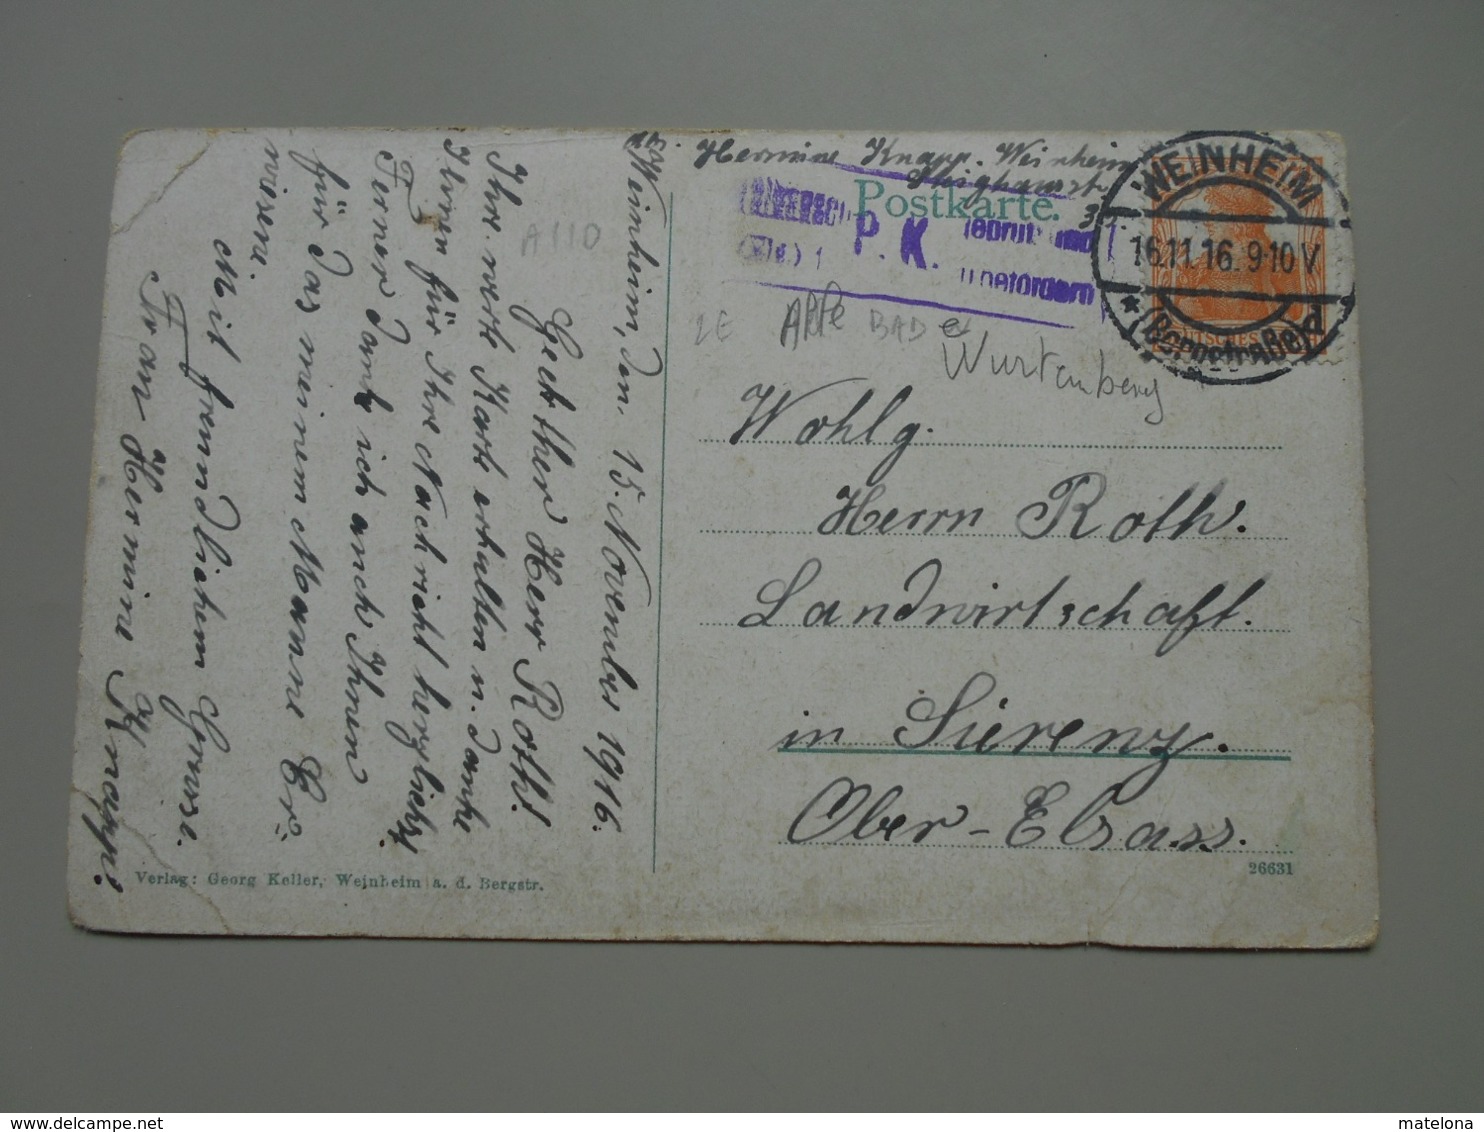 Weinheim, den 15. November 1916.
Geehrther Herr Roth!
Ihre werte Karte erhalten u. danke
Ihnen für Ihre Nachricht herzlichst
Ferner danke ich auch Ihnen
für das meinem Manne Er-
wisene.
Mit freundlichem Grusse.
Frau Hermine Knapp.
Verlag: Georg Keller, Weinheim a. d. Bergstr.
A110
Hermine Knapp. Weinheim
Postkarte.
P. K.
2E Alle BADE
Wurtemberg
WEINHEIM
16.11.16. 9-10 V
* (Bergstraße) d
Wohlg.
Herrn Roth.
Landwirtschaft.
in Sierenz.
Ober-Elsass.
26631
matelona